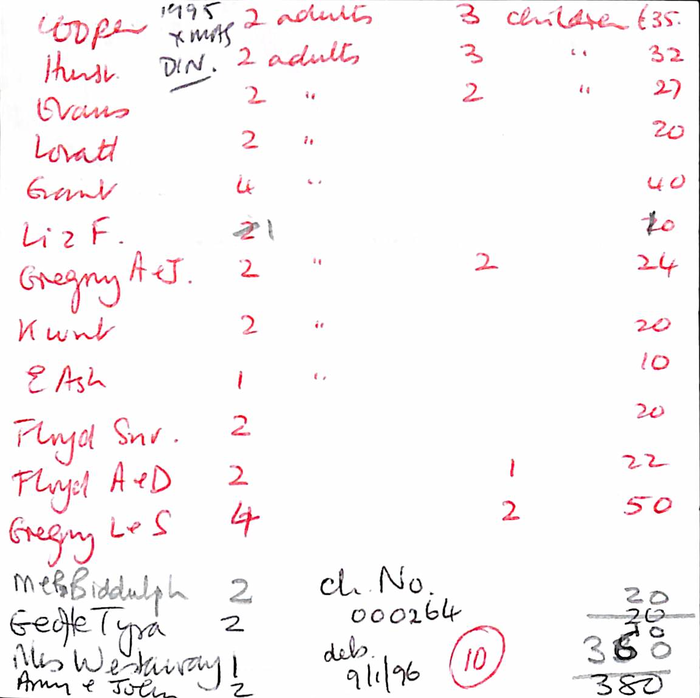 Cooper 1995 XMAS DIN. 2 adults 3 children £35.
Hurst. 2 adults 3 " 32
Evans 2 " 2 " 27
Lovatt 2 " 20
Grant 4 " 40
Liz F. 1 10
Gregory A & J. 2 " 2 24
2 " 20
E Ash 1 " 10
Floyd Snr. 2 20
Floyd A & D 2 1 22
Gregory L & S 4 2 50
M & B Biddulph 2 ch. No. 20
Geoff e Tyra 2 000264 20
Mrs Westaway 1 deb. 10
Amy & John 2 9/1/96 10 380